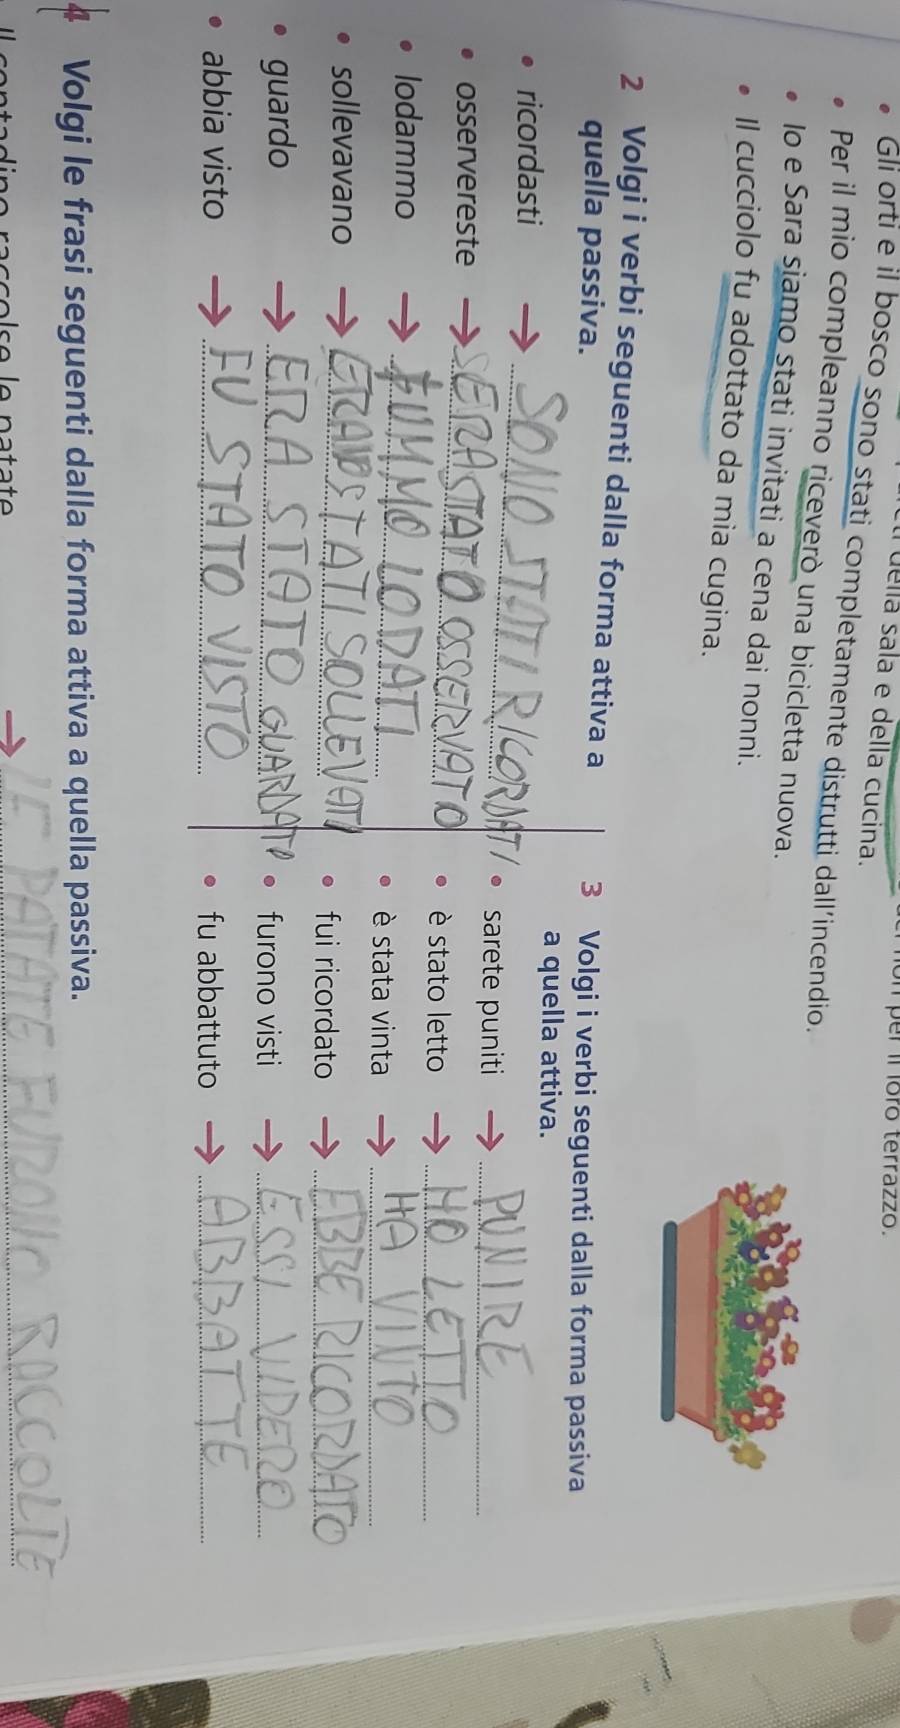 della sala e della cucina.
per il loro terrazzo.
• Gli orti e il bosco sono stati completamente distrutti dall'incendio.
• Per il mio compleanno riceverò una bicicletta nuova.
• Io e Sara siamo stati invitati a cena dai nonni.
• Il cucciolo fu adottato da mia cugina.
2 Volgi i verbi seguenti dalla forma attiva a
quella passiva.
• ricordasti → SONO STATI RICORDATI
• osservereste → SERASTATO OSSERVATO
• lodammo → FUMMO LODATI
• sollevavano → ERANO STATI SOLLEVATO
• guardo → ERA STATO GUARDATO
• abbia visto → FU STATO VISTO
3 Volgi i verbi seguenti dalla forma passiva
a quella attiva.
• sarete puniti → PUNIRE
• è stato letto → HO LETTO
• è stata vinta → HA VINTO
• fui ricordato → EBBE RICORDATO
• furono visti → ESSI VIDERO
• fu abbattuto → ABBATTE
4 Volgi le frasi seguenti dalla forma attiva a quella passiva.
Il contadino raccolse le patate → LE PATATE FURONO RACCOLTE